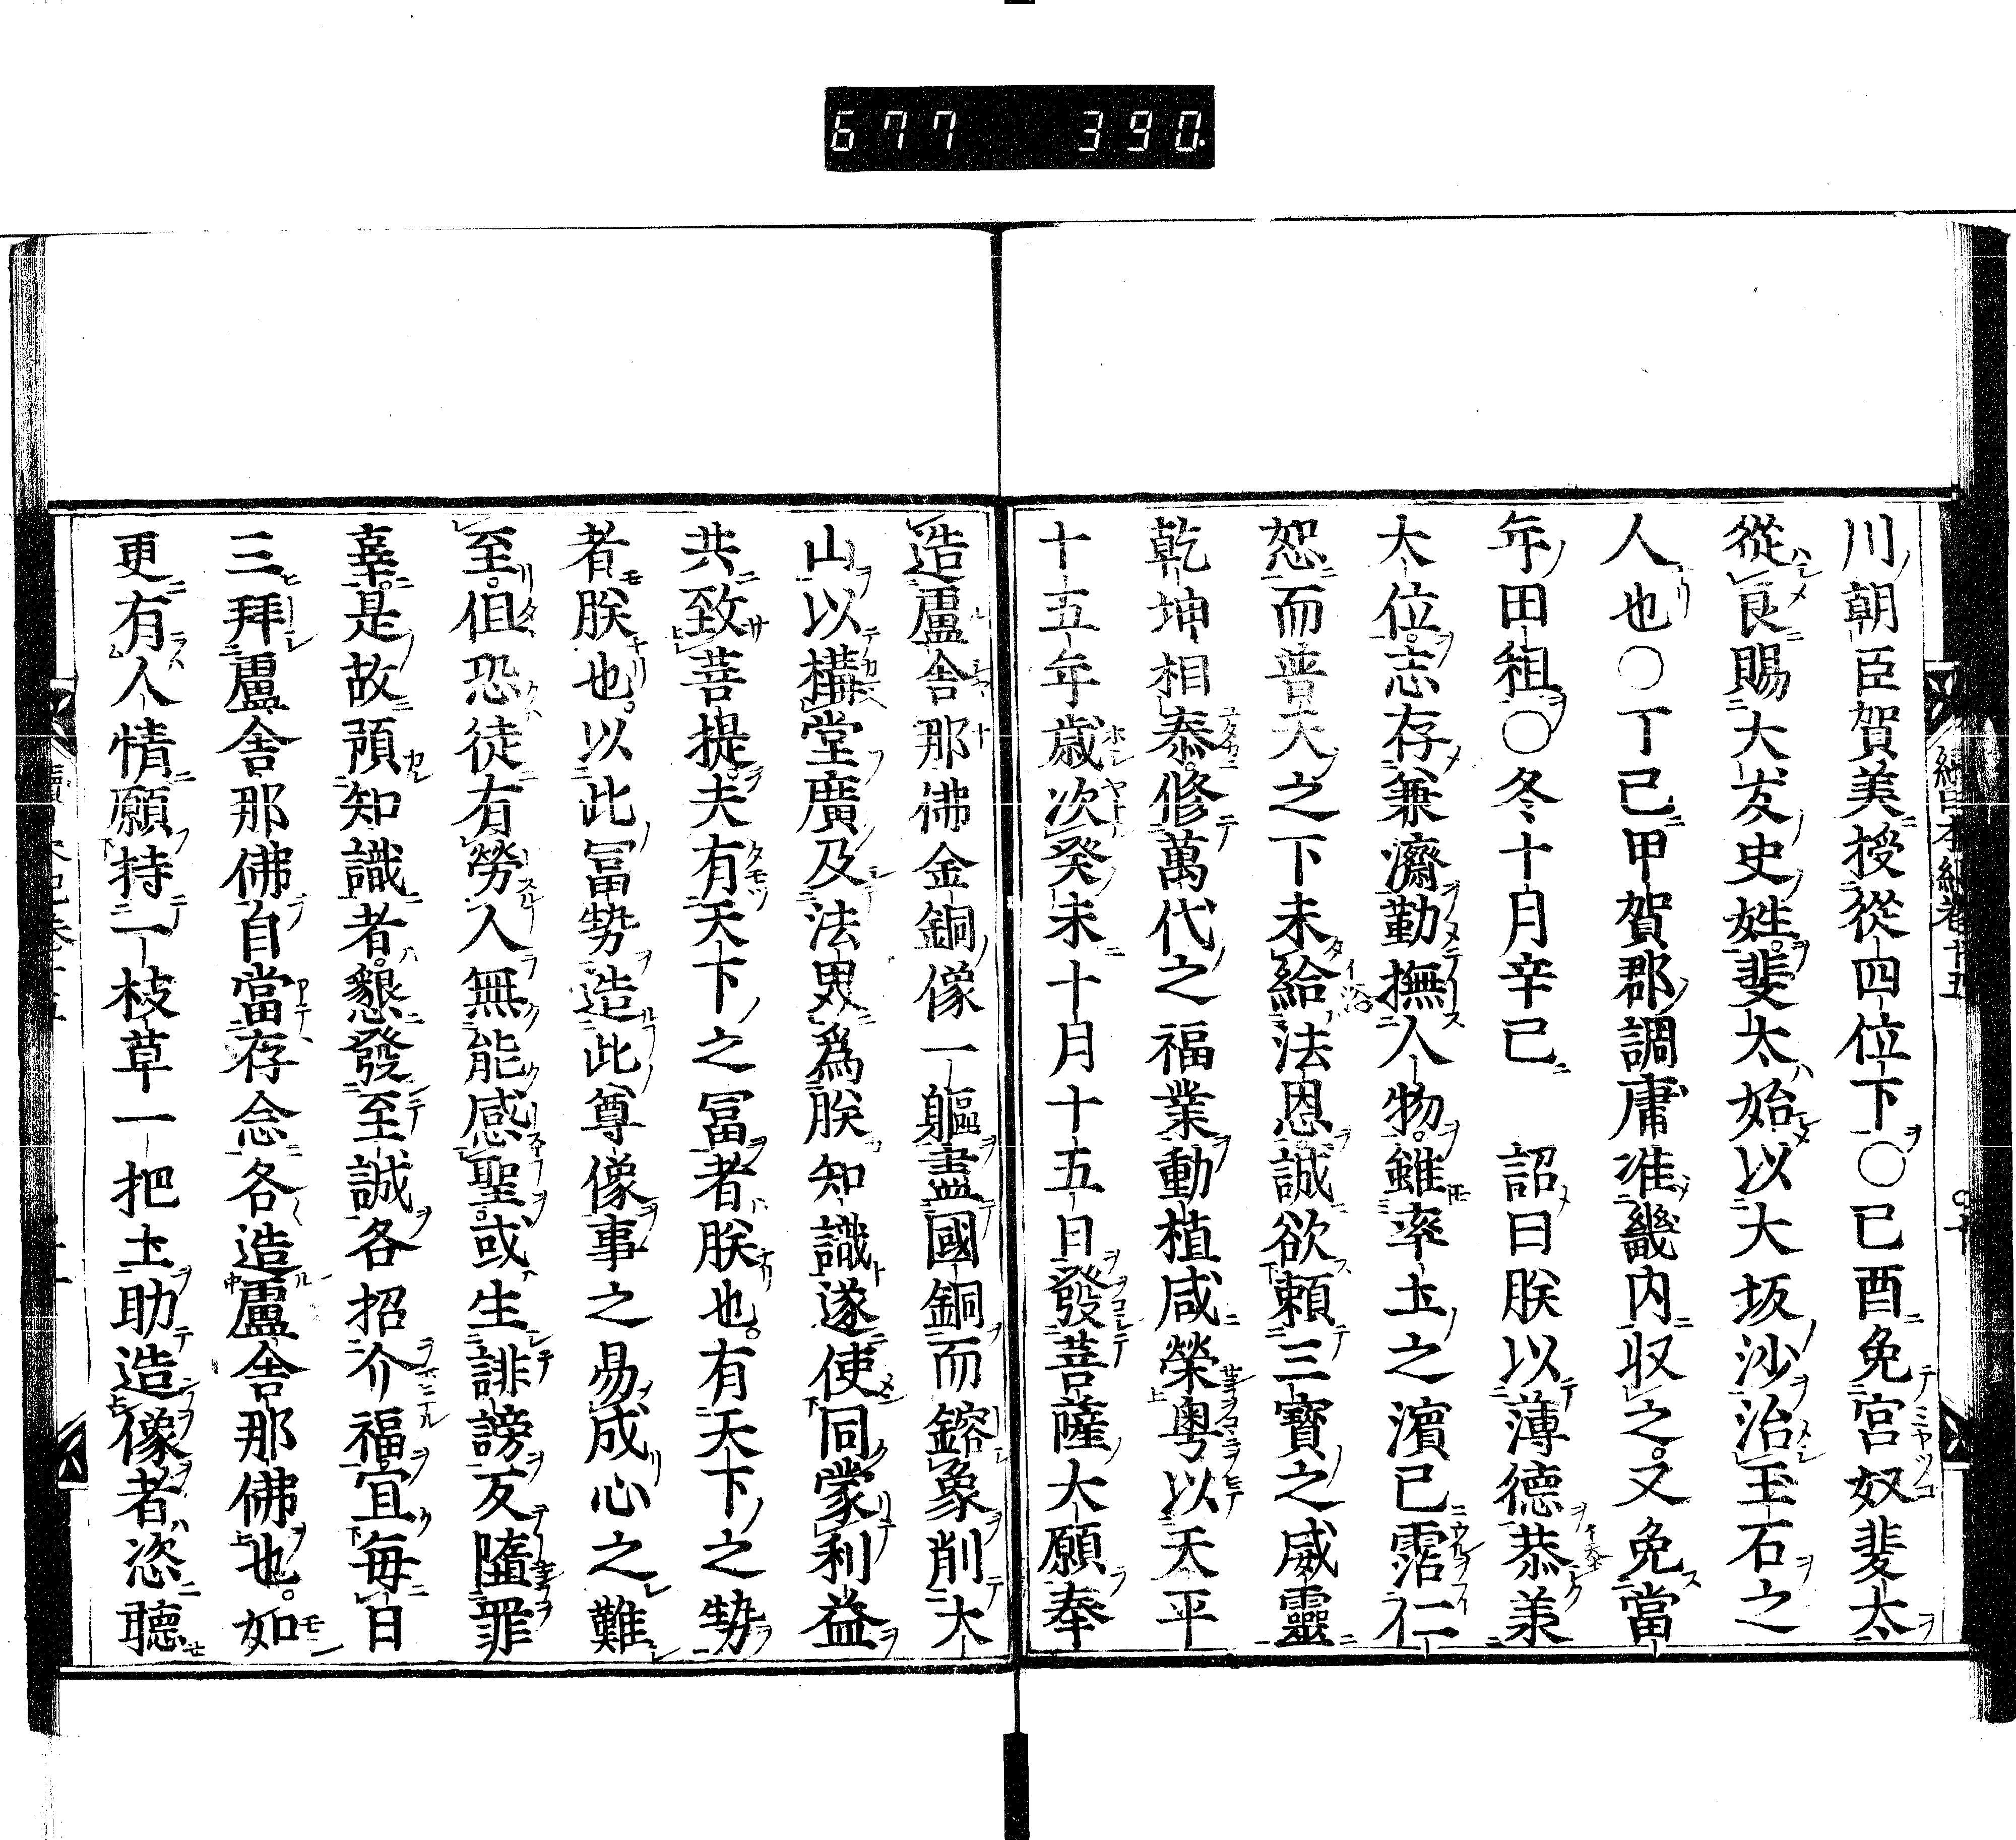 677 390
川朝臣賀美授從四位下○已酉免宮奴斐太
從良賜大友史姓斐太始以大坂沙治玉石之
人也○丁已甲賀郡調庸准畿內收之又免當
年田租○冬十月辛已 詔曰朕以薄德恭兼
大位志存兼濟勤撫人物雖率土之濱已霑仁
恕而普天之下未給法恩誠欲賴三寶之威靈
乾坤相泰修萬代之福業動植咸榮粤以天平
十五年歲次癸未十月十五日發菩薩大願奉
造盧舍那佛金銅像一軀盡國銅而鎔象削大
山以構堂廣及法界爲朕知識遂使同蒙利益
共致菩提夫有天下之冨者朕也有天下之勢
者朕也以此冨勢造此尊像事之易成心之難
至但恐徒有勞人無能感聖或生誹謗反墮罪
辜是故預知識者懇發至誠各招介福宜每日
三拜盧舍那佛自當存念各造盧舍那佛也如
更有人情願持一枝草一把土助造像者恣聽